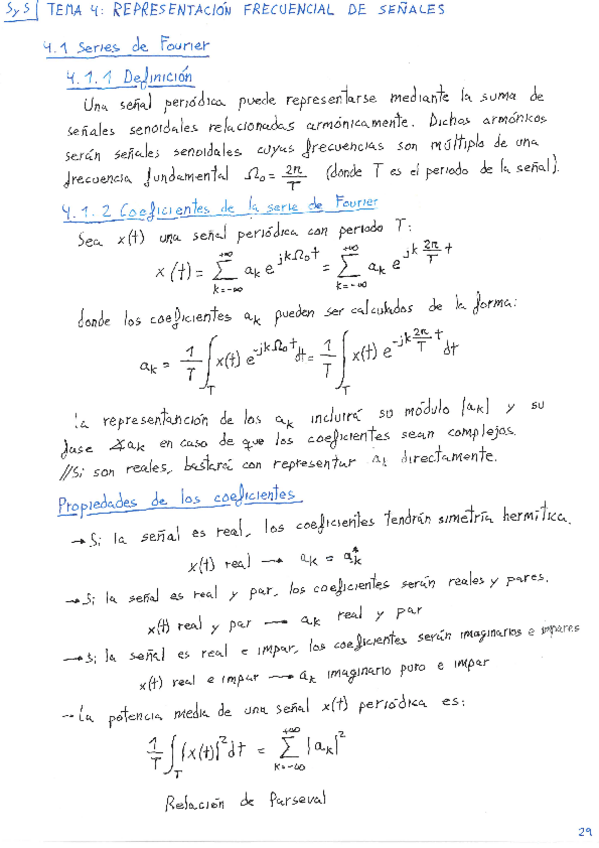 SyS | TEMA 4: REPRESENTACIÓN FRECUENCIAL DE SEÑALES
4.1 Series de Fourier
4.1.1 Definición
Una señal periódica puede representarse mediante la suma de
señales senoidales relacionadas armónicamente. Dichos armónicos
serán señales senoidales cuyas frecuencias son múltiplo de una
frecuencia fundamental Ω₀ = 2π/T (donde T es el periodo de la señal).
4.1.2 Coeficientes de la serie de Fourier
Sea x(t) una señal periódica con periodo T:
x(t) = ∑_{k=-∞}^{+∞} aₖ e^{jkΩ₀t} = ∑_{k=-∞}^{+∞} aₖ e^{jk 2π/T t}
donde los coeficientes aₖ pueden ser calculados de la forma:
aₖ = 1/T ∫_T x(t) e^{-jkΩ₀t} dt = 1/T ∫_T x(t) e^{-jk 2π/T t} dt
La representanción de los aₖ incluirá su módulo |aₖ| y su
fase ∡aₖ en caso de que los coeficientes sean complejos.
//Si son reales, bastará con representar aₖ directamente.
Propiedades de los coeficientes
→ Si la señal es real, los coeficientes tendrán simetría hermítica.
x(t) real → aₖ = aₖ*
→ Si la señal es real y par, los coeficientes serán reales y pares.
x(t) real y par → aₖ real y par
→ Si la señal es real e impar, los coeficientes serán imaginarios e impares
x(t) real e impar → aₖ imaginario puro e impar
→ La potencia media de una señal x(t) periódica es:
1/T ∫_T |x(t)|² dt = ∑_{k=-∞}^{+∞} |aₖ|²
Relación de Parseval
29